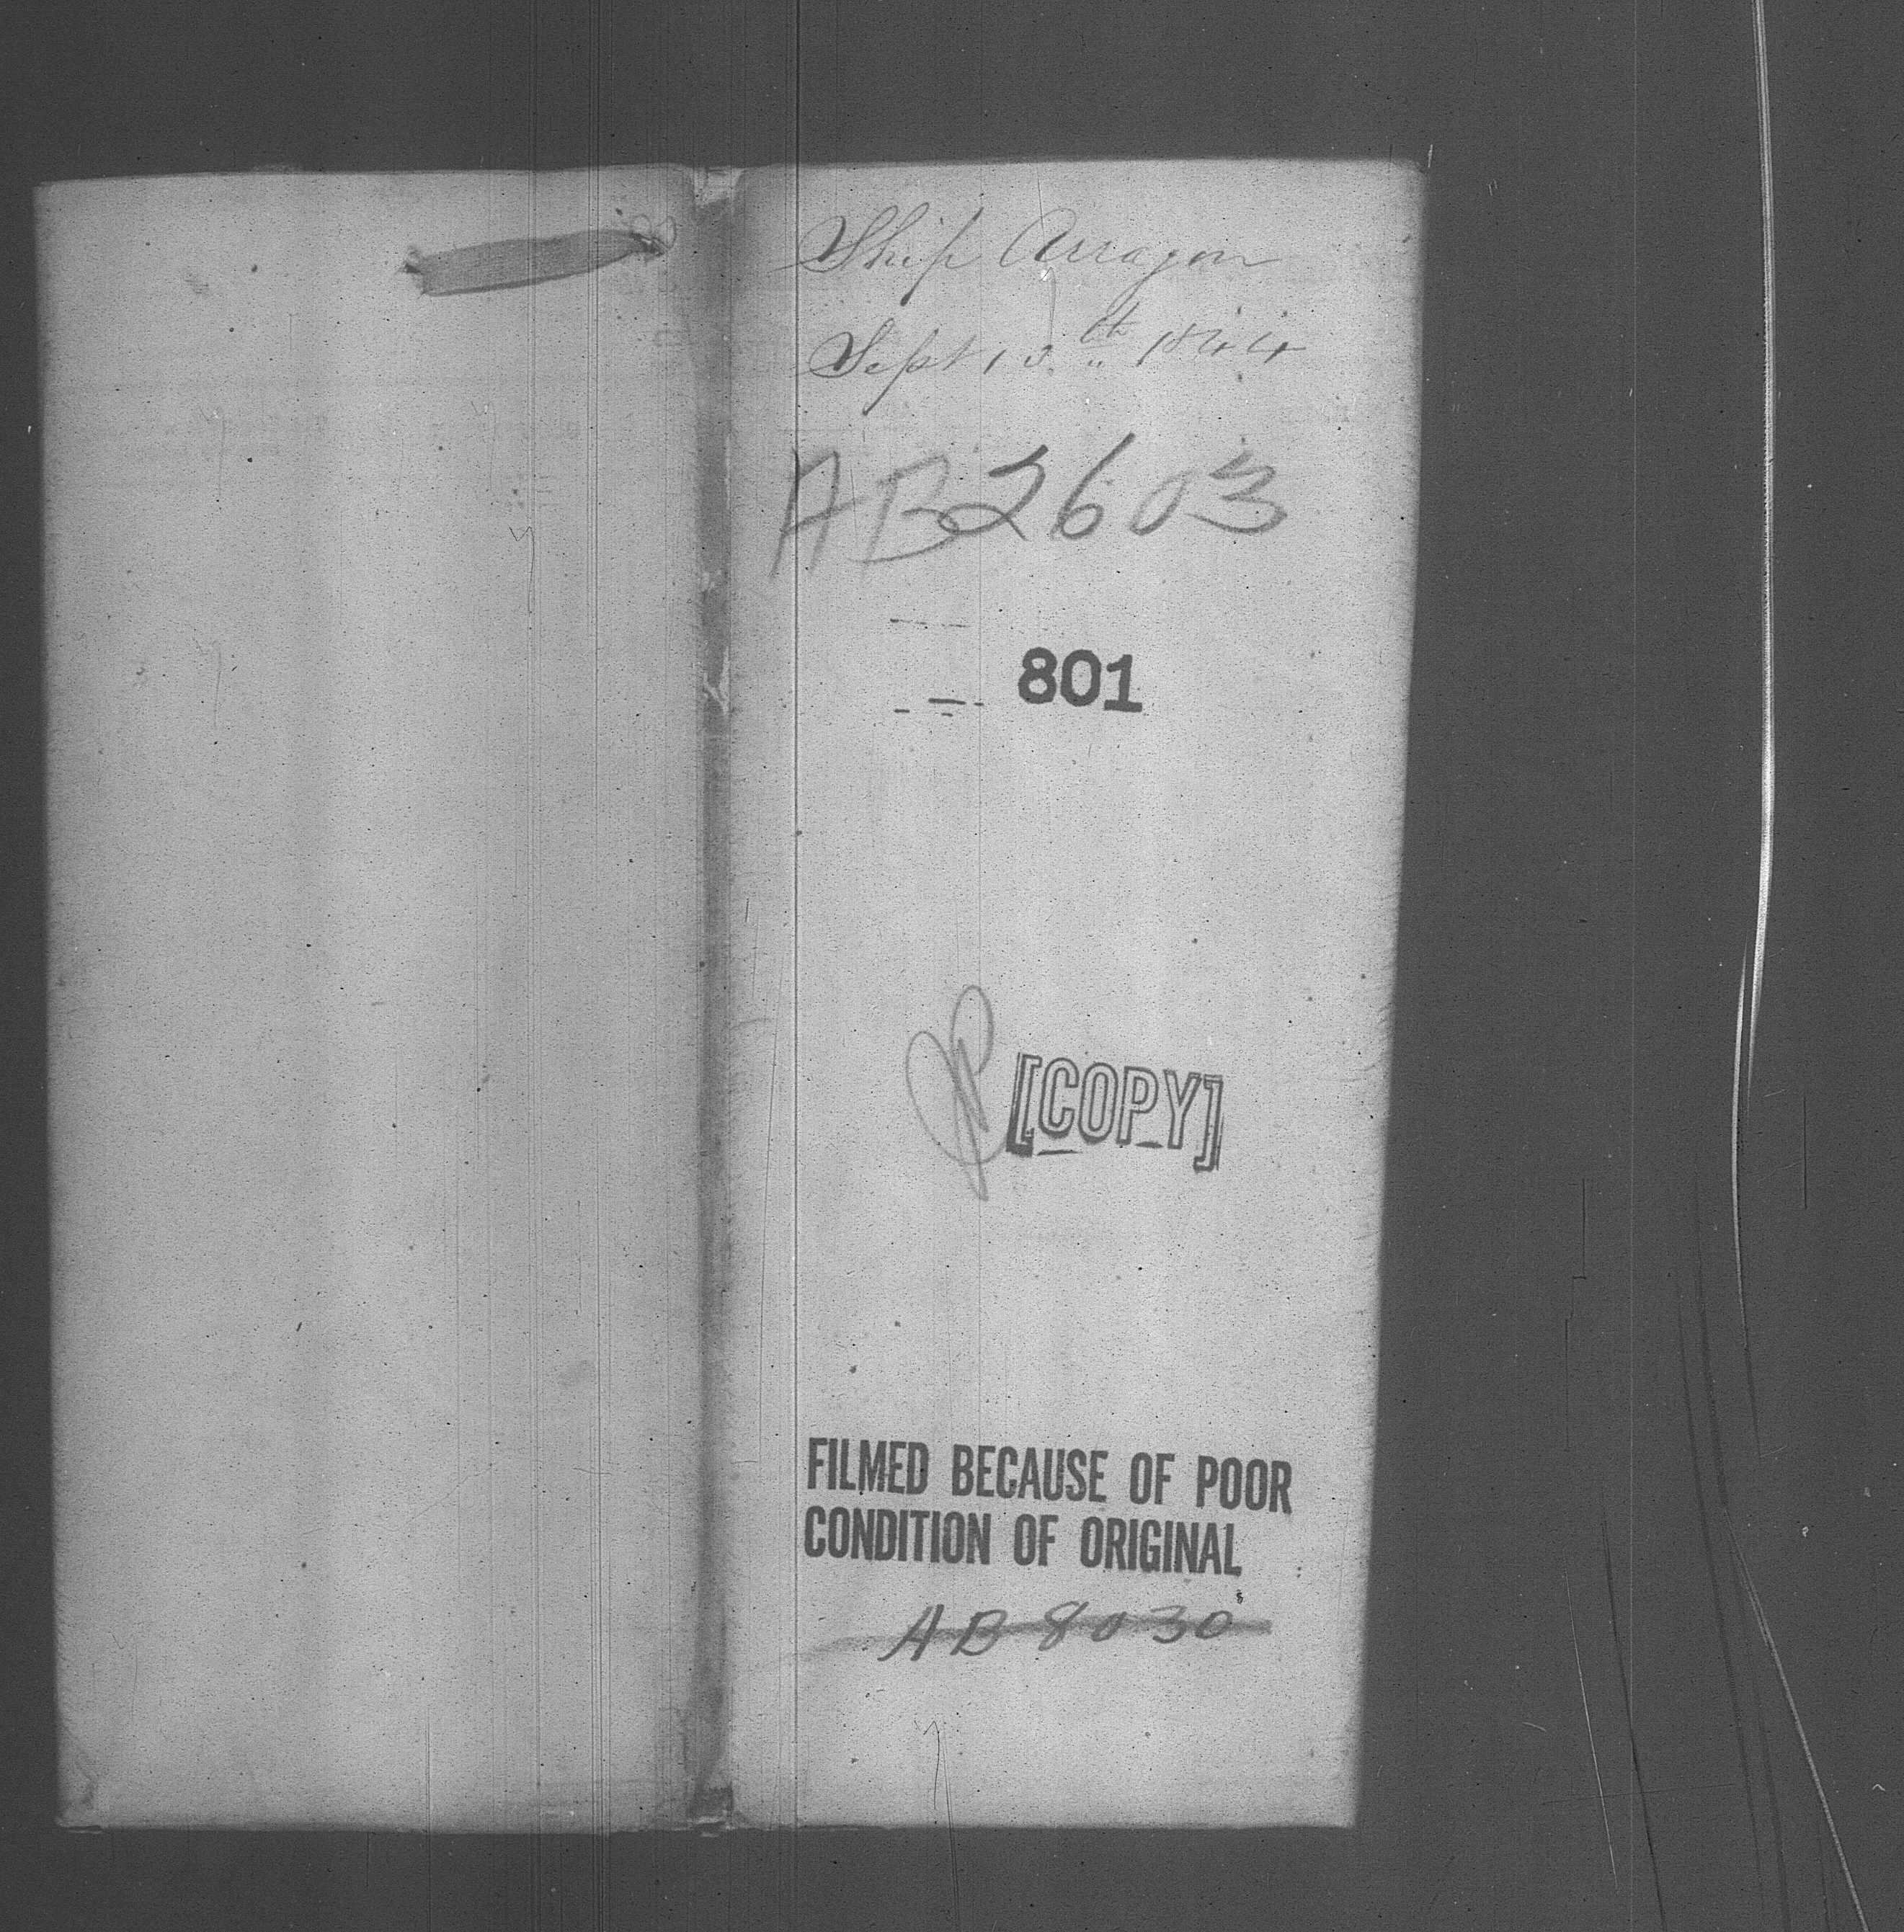 Ship Arragon
Sept 13th 1844
AB2603
801
[COPY]
FILMED BECAUSE OF POOR
CONDITION OF ORIGINAL
AB 8030